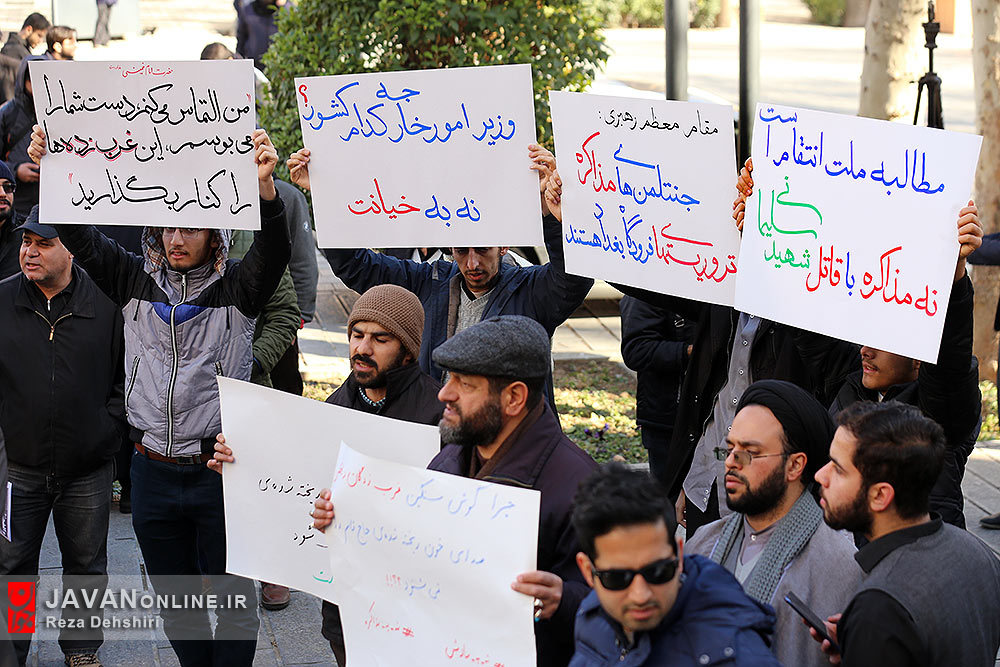 حضرت امام خمینی
"من التماس می‌کنم، دست شما را
می‌بوسم، این غرب زده‌ها
را کنار بگذارید"
وزیر امور خارجه
کدام کشور؟
نه به خیانت
مقام معظم رهبری:
جنتلمن‌های
مذاکره
تروریستهای فرودگاه بغداد هستند
مطالبه ملت انتقام است
نه مذاکره با قاتل شهید سلیمانی
چرا گوش سنگین غرب زدگان
صدای خون ریخته شده‌ی حاج قاسم
نمی‌شنود
ریخته شده‌ی
JAVANONLINE.IR
Reza Dehshiri